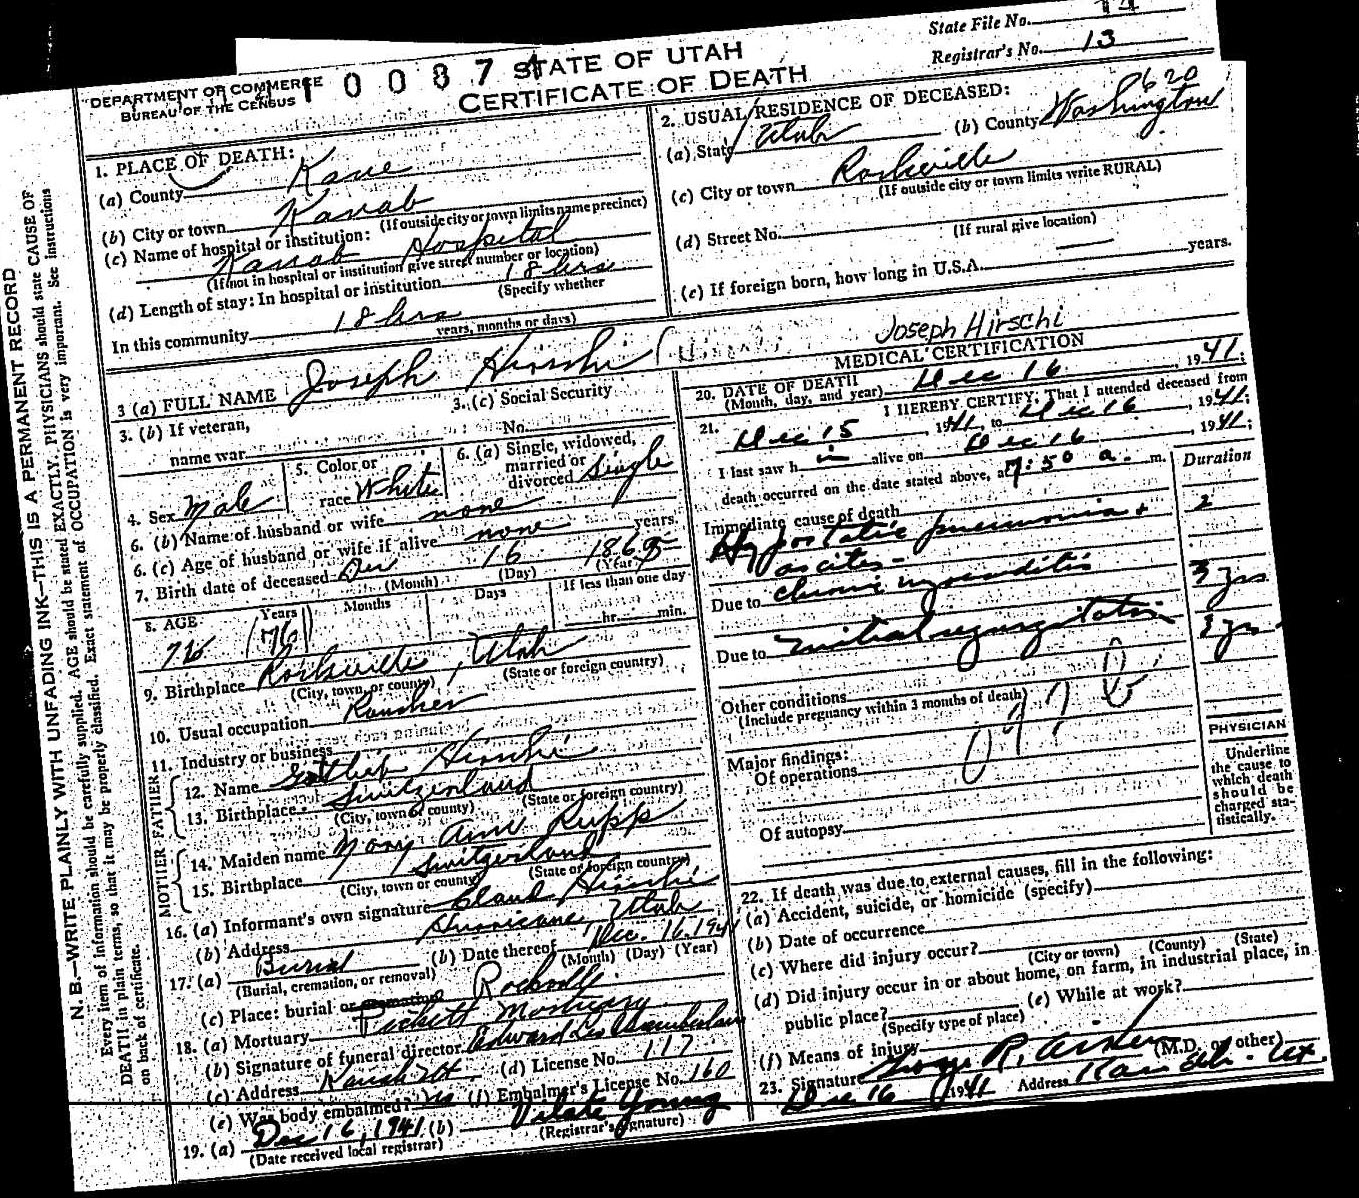 State File No. 14
Registrar's No. 13
DEPARTMENT OF COMMERCE
BUREAU OF THE CENSUS
10087
STATE OF UTAH
CERTIFICATE OF DEATH
N. B.—WRITE PLAINLY WITH UNFADING INK—THIS IS A PERMANENT RECORD
Every item of information should be carefully supplied. AGE should be stated EXACTLY. PHYSICIANS should state CAUSE OF
DEATH in plain terms, so that it may be properly classified. Exact statement of OCCUPATION is very important. See instructions
on back of certificate.
1. PLACE OF DEATH:
(a) County Kane
(b) City or town Kanab
(If outside city or town limits name precinct)
(c) Name of hospital or institution:
Kanab Hospital
(If not in hospital or institution give street number or location)
(d) Length of stay: In hospital or institution 18 hrs
(Specify whether
In this community 18 hrs
years, months or days)
2. USUAL RESIDENCE OF DECEASED:
620
(a) State Utah (b) County Washington
(c) City or town Rockville
(If outside city or town limits write RURAL)
(d) Street No.
(If rural give location)
(e) If foreign born, how long in U.S.A. — years.
3 (a) FULL NAME Joseph Hirschi
Joseph Hirschi
3. (b) If veteran,
name war
3. (c) Social Security
No.
4. Sex Male
5. Color or
race White
6. (a) Single, widowed,
married or
divorced Single
6. (b) Name of husband or wife none
6. (c) Age of husband or wife if alive none years.
7. Birth date of deceased Dec 16 1865
(Month) (Day) (Year)
8. AGE
Years Months Days If less than one day
76 (76) hr. min.
9. Birthplace Rockville, Utah
(City, town, or county) (State or foreign country)
10. Usual occupation Rancher
11. Industry or business
FATHER
12. Name Gottlieb Hirschi
13. Birthplace Switzerland
(City, town or county) (State or foreign country)
MOTHER
14. Maiden name Mary Ann Rupp
15. Birthplace Switzerland
(City, town or county) (State or foreign country)
16. (a) Informant's own signature Claud Hirschi
(b) Address Hurricane, Utah
17. (a) Burial (b) Date thereof Dec. 16, 1941
(Burial, cremation, or removal) (Month) (Day) (Year)
(c) Place: burial or cremation Rockville
18. (a) Mortuary Pickett Mortuary
(b) Signature of funeral director Edward Chamberlain
(c) Address Kanab Ut (d) License No. 117
(e) Was body embalmed? (f) Embalmer's License No. 160
19. (a) Dec 16, 1941 (b) Vilate Young
(Date received local registrar) (Registrar's signature)
MEDICAL CERTIFICATION
20. DATE OF DEATH
(Month, day, and year) Dec 16, 1941;
21. I HEREBY CERTIFY, That I attended deceased from
Dec 15, 1941, to Dec 16, 1941;
I last saw h im alive on Dec 16, 1941;
death occurred on the date stated above, at 7:50 a. m.
Duration
Immediate cause of death
Hypostatic pneumonia + 2
ascites -
Due to chronic myocarditis 3 yrs
Due to mitral regurgitation 3 yrs
Other conditions
(Include pregnancy within 3 months of death)
Major findings:
Of operations
Of autopsy
PHYSICIAN
Underline
the cause to
which death
should be
charged sta-
tistically.
22. If death was due to external causes, fill in the following:
(a) Accident, suicide, or homicide (specify)
(b) Date of occurrence
(c) Where did injury occur?
(City or town) (County) (State)
(d) Did injury occur in or about home, on farm, in industrial place, in
public place? (e) While at work?
(Specify type of place)
(f) Means of injury
23. Signature George R. Aiken (M.D. or other)
Dec 16 1941 Address Kanab, Ut.